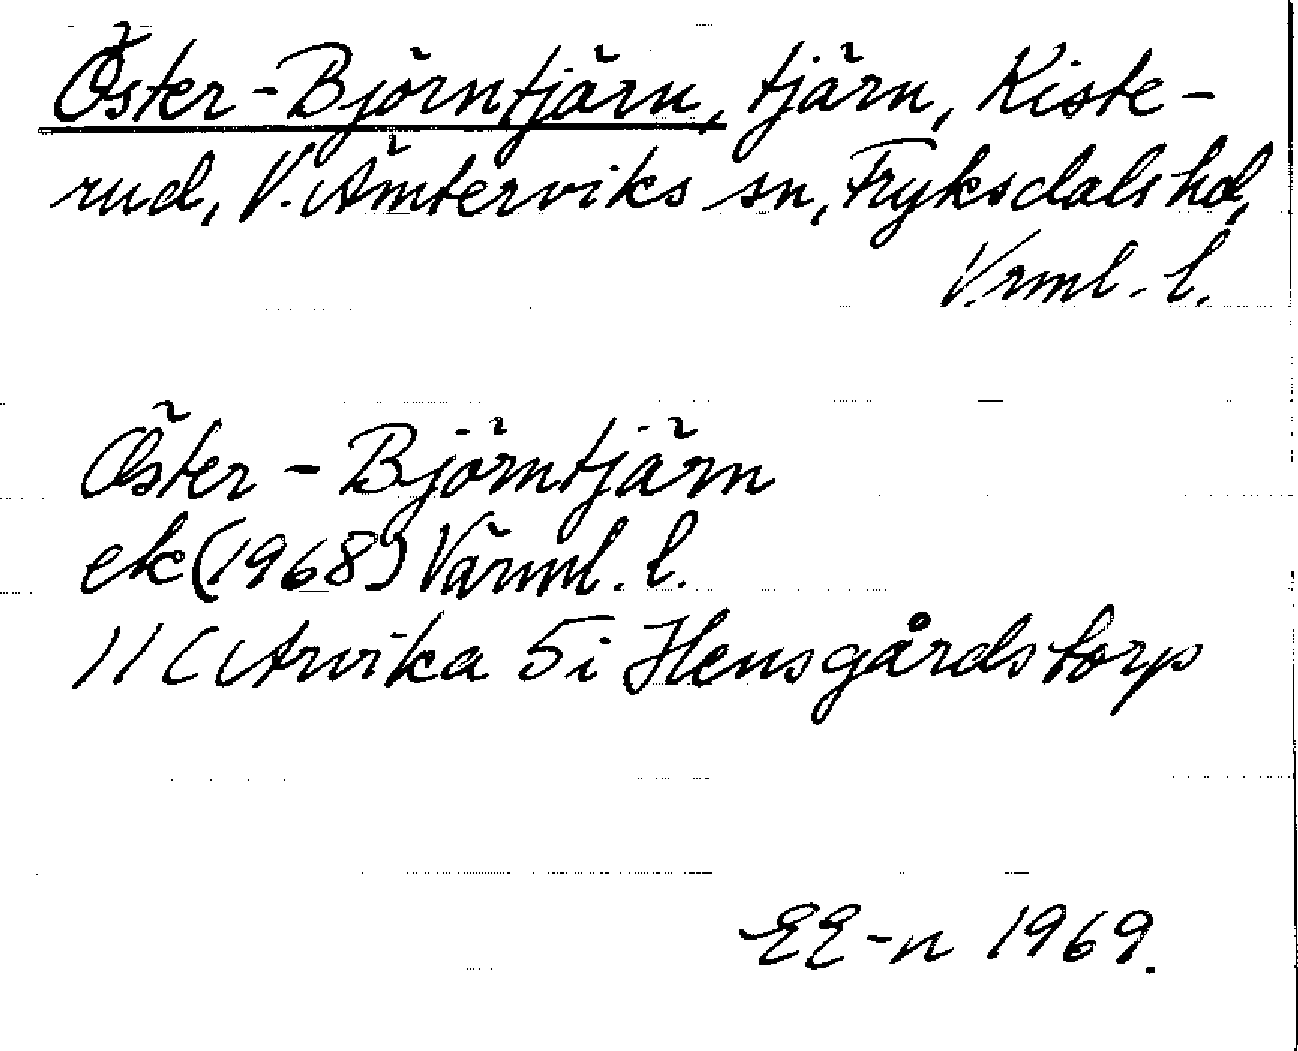 Öster-Björntjärn, tjärn, Kiste-
rud, V. Ämterviks sn, Fryksdals hd,
Vrml. l.
Öster-Björntjärn
ek (1968) Värml. l.
11 C Arvika 5 i Hensgårdstorp
EE-n 1969.